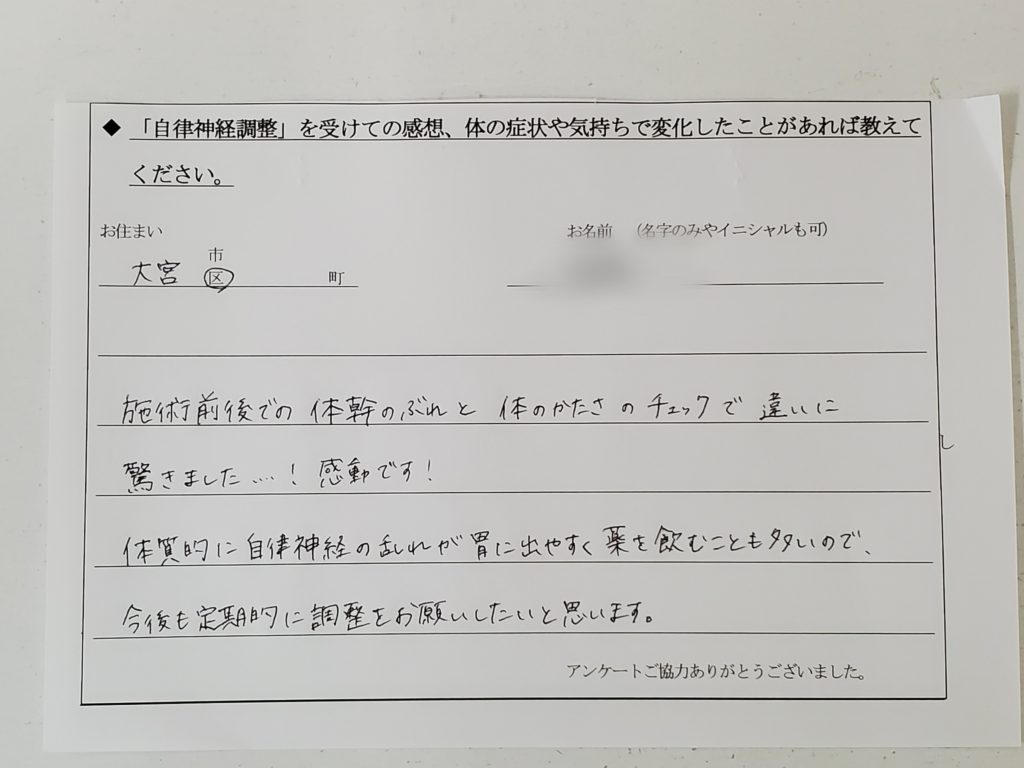 ◆ 「自律神経調整」を受けての感想、体の症状や気持ちで変化したことがあれば教えて
ください。
お住まい
お名前 (名字のみやイニシャルも可)
大宮 市 区 町
施術前後での体幹のぶれと体のかたさのチェックで違いに
驚きました…!感動です!
体質的に自律神経の乱れが胃に出やすく薬を飲むことも多いので、
今後も定期的に調整をお願いしたいと思います。
アンケートご協力ありがとうございました。